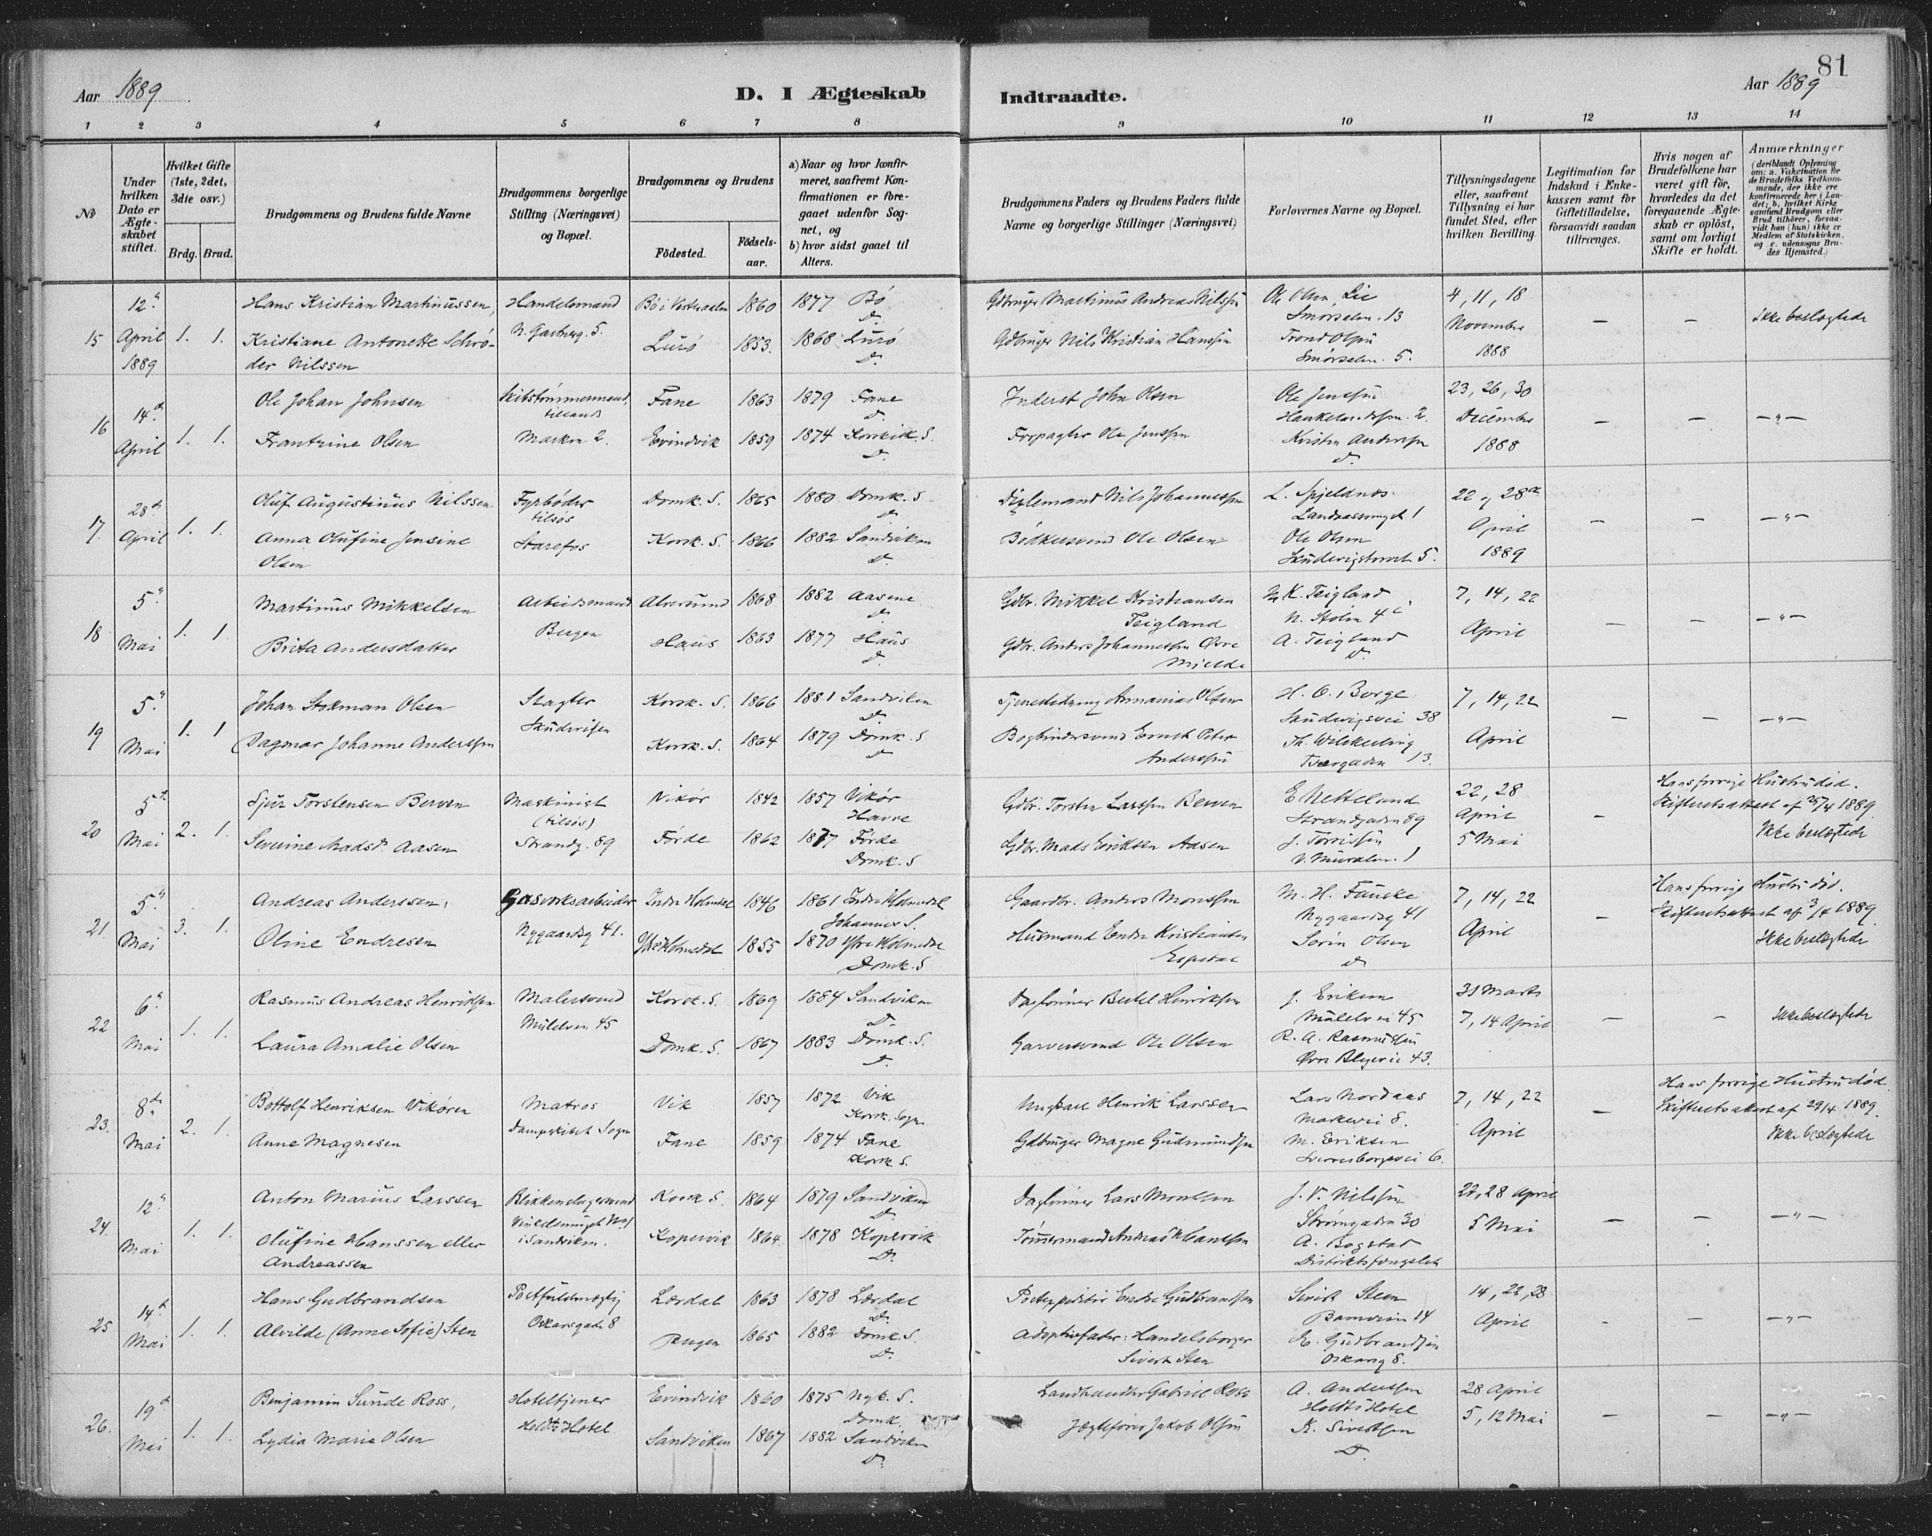 Aar 1889
D. I Ægteskab Indtraadte.
Aar 1889
81
1 2 3 4 5 6 7 8 9 10 11 12 13 14
No
Under hvilken Dato er Ægteskabet stiftet.
Hvilket Gifte (1ste, 2det, 3die osv.)
Brdg. Brud.
Brudgommens og Brudens fulde Navne
Brudgommens borgerlige Stilling (Næringsvei) og Bopæl.
Brudgommens og Brudens
Födested.
Födselsaar.
a) Naar og hvor konfirmeret, saafremt Konfirmationen er foregaaet udenfor Sognet, og
b) hvor sidst gaaet til Alters.
Brudgommens Faders og Brudens Faders fulde Navne og borgerlige Stillinger (Næringsvei)
Forlovernes Navne og Bopæl.
Tillysningsdagene eller, saafremt Tillysning ei har fundet Sted, efter hvilken Bevilling.
Legitimation for Indskud i Enkekassen samt for Giftetilladelse, forsaavidt saadan tiltrænges.
Hvis nogen af Brudefolkene har været gift för, hvorledes da det foregaaende Ægteskab er oplöst, samt om lovligt Skifte er holdt.
Anmærkninger
(deriblandt Oplysning om: a. Vakcination for de Brudefolks Vedkommende, der ikke ere konfirmerede her i Landet; b. hvilket Kirkesamfund Brudgom eller Brud tilhörer, forsaavidt han (hun) ikke er Medlem af Statskirken, og c. udensogns Brudes Hjemsted.)
15 12 April 1889 1. 1.
Hans Kristian Martinussen, Handelsmand Bø i Vesteraalen 1860 1877 Bø D. Gdbruger Martinus Andreas Nilssen Ole Olsen Lie Smørsalm. 13 4, 11, 18 November 1888 — — Ikke beslægtede
Kristiane Antonette Schrøder Nilssen Lurø 1853. 1868 Lurø D. Gdbruger Nils Kristian Hanssen Trond Olsen Smørsalm. 5.
16 14de April 1. 1.
Ole Johan Johnsen Skibstømmermand, tillands Marken 2. Fane 1863 1879 Fane D. Inderst John Olsen Ole Jenssen 23, 26, 30 December 1888 — — —"—
Frantzine Olsen Evindvik 1859 1874 Korsk. S. D. Ole Jenssen Kristen Andersen D.
17. 28de April 1. 1.
Oluf Augustinus Nilssen Fyrbøder tilsøs Starefos Domk. S. 1865 1880 Domk. S. D. Nils Johannessen L. Spjeldnæs. 1 22 og 28de April 1889 — — —"—
Anna Olufine Jensine Olsen Korsk. S. 1866 1882 Sandviken D. Bødkersvend Ole Olsen Ole Olsen Skudevigstorvet 5.
18 5te Mai 1. 1
Martinus Mikkelsen Arbeidsmand Bergen Alversund 1868 1882 Aasene D. Gdbr. Mikkel Kristiansen Teigland K. Teigland N. Stølen 4c 7, 14, 22 April — — —"—
Brita Andersdatter Haus 1863 1877 Haus D. Gdbr. Anders Johannessen Øvre Mjelde A. Teigland D.
19 5te Mai 1. 1
Johan Stokman Olsen Slagter Skudevigen Korsk. S. 1866 1881 Sandviken D. Ananias Olsen H. O. Borge Skudevigsvei 38 7, 14, 22 April — — —"—
Dagmar Johanne Anderssen Korsk. S. 1864 1879 Domk. S D Bogbindersvend Ernst Peter Anderssen Th. 13.
20 5te Mai 2. 1.
Sjur Torstensen Berven Maskinist (tilsøs) Strandg. 89 Vikør 1842 1857 Vikør Havne Gdbr. Torsten Larssen Berven E. Netteland Strandgaden 89 22, 28 April 5 Mai — Hans forrige Hustru død. Skifteretsattest af 25/4 1889. Ikke beslægtede
Severine Madsd. Aasen Førde 1862 1877 Førde Domk. S Gdbr. Mads Eriksen Aasen J. Torrissen V. Muralm. 1
21. 5te Mai 3. 1.
Andreas Anderssen, Gasverksarbeider Nygaardsg 41. Indre Holmedal 1846 1861 Indre Holmedal Johannes S. Gaardbr. Anders Monssen M. H. Fauske Nygaardsg 41 7, 14, 22 April — Hans forrige Hustru død. Skifteretsattest af 3/4 1889. Ikke beslægtede
Oline Endresen Ytre Holmedal 1855 1870 Ytre Holmedal Domk. S Husmand Endre Kristiansen Espetvæ Søren Olsen D
22 6te Mai 1. 1.
Rasmus Andreas Henriksen Malersvend Mulelven 45 Korsk. S. 1869 1884 Sandviken D. Dagfønner Bertel Henriksen J. Eriksen Mulelvei 45 31 Marts 7, 14 April — — Ikke beslægtede
Laura Amalie Olsen Domk. S. 1867 1883 Domk. S. D. Garversvend Ole Olsen R. A. Rasmussen Øvre Blegevei 43.
23. 8de Mai 2. 1.
Bottolf Henriksen Vikøren Matros Dampskibet Sogn Vik 1857 1872 Vik Korsk. Sogn Henrik Larssen Lars Nordaas Markevei 8. 7, 14, 22 April — Hans forrige Hustru død. Skifteretsattest af 29/4 1889. Ikke beslægtede
Anne Magnesen Fane 1859 1874 Fane Korsk S. Gdbruger Magne Gudmundsen M. Eriksen Sverresborgsvei 6.
24. 12te Mai 1. 1.
Anton Marius Larssen Blikkenslagersvend i Sandviken. Korsk S 1864 1879 Sandviken D. Dagfønner Lars Monssen J. V. Nilssen Strømgaden 30 22, 28 April 5 Mai — — —"—
Olufine Hanssen eller Andreassen Kopervik 1864. 1878 Kopervik D. Tømmermand Andreas Hanssen A. Bogstad Distriktsfængslet
25 14de Mai 1. 1.
Hans Gudbrandsen Postfuldmægtig Oskarsgade 8 Lærdal 1863 1878 Lærdal D. Postexpeditør Endre Gudbrandsen Sivert Steen 14 14, 22, 28 April — — —"—
Alvilde (Anne Sofie) Sten Bergen 1865 1882 Domk. S. D. Adoptivfader: Handelsborger Sivert Sten E. Gudbrandsen Oskarsg 8.
26. 19de Mai 1. 1.
Benjamin Sunde Ross, Hoteltjener Holdts Hotel. Evindvik 1860 1875 Nyk. S. Domk. Landhandler Gabriel Ross A. Anderssen Holdts Hotel 28 April 5, 12 Mai — — —"—
Lydia Marie Olsen Sandviken 1867 1882 Sandviken D. Jægtefører Jakob Olsen K. Sivertsen D